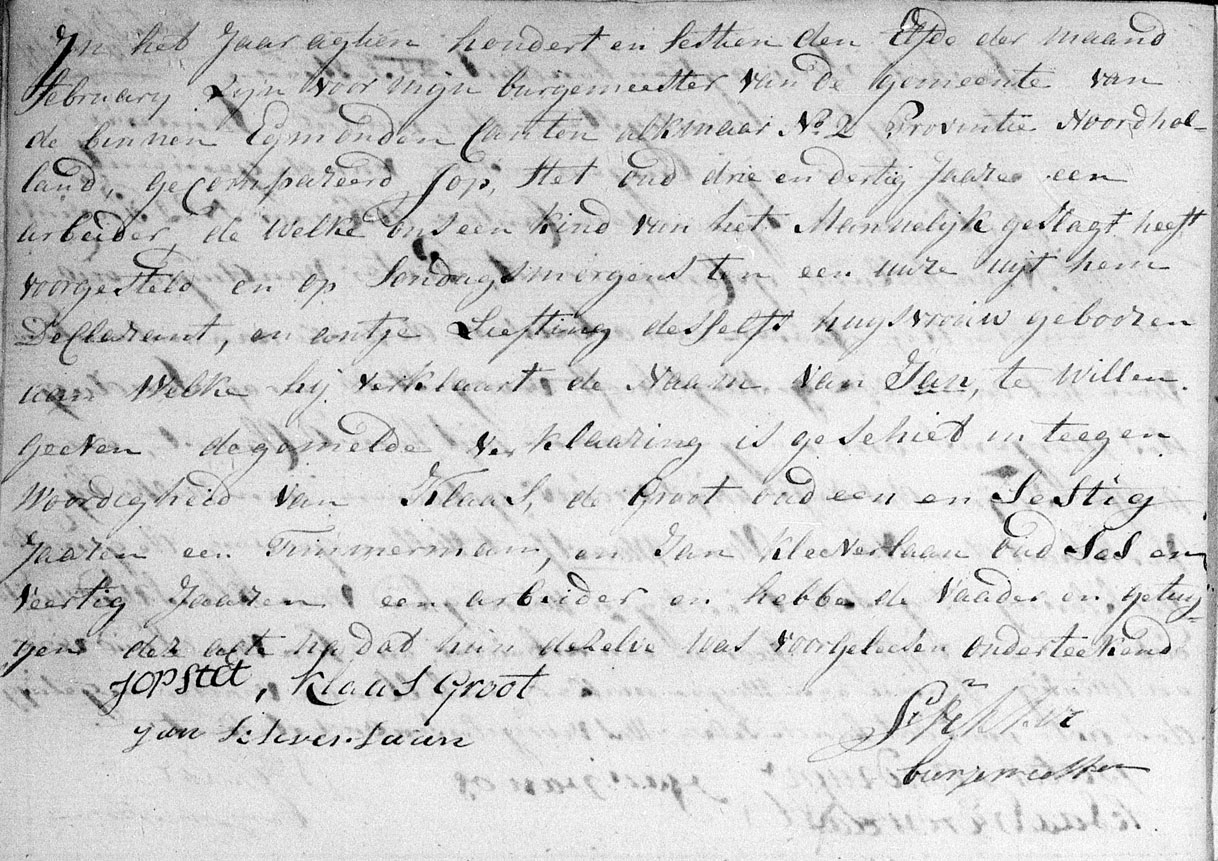 In het Jaar agtien hondert en sestien den Elfde der maand
february Zijn voor mijn burgemeester van de gemeente van
de binnen Egmonden Canton alkmaar No. 2 Provintie Noordhol-
land, gecompareerd Jop, Stet oud drie en dertig Jaare een
arbeider, de Welke ons een kind van het Mannelijk geslagt heeft
voorgesteld en op Sondagsmorgens ten een uure uijt hem
Declarant, en antje Liefting desselfs huysvrouw gebooren
aan Welke hij verklaart de Naam van Jan, te Willen
geeven de gemelde verklaaring is geschiet in teegen
Woordigheid van Klaas, de Groot oud een en Sestig
Jaaren een Timmerman, en Jan kleeverlaan oud Ses en
veertig Jaaren een arbeider en hebbe de Vaader en getuij-
gen dez acte na dat hun deselve was voorgeleesen onderteekend
Jop stet, klaas Groot
jan klever laan
burgemeester